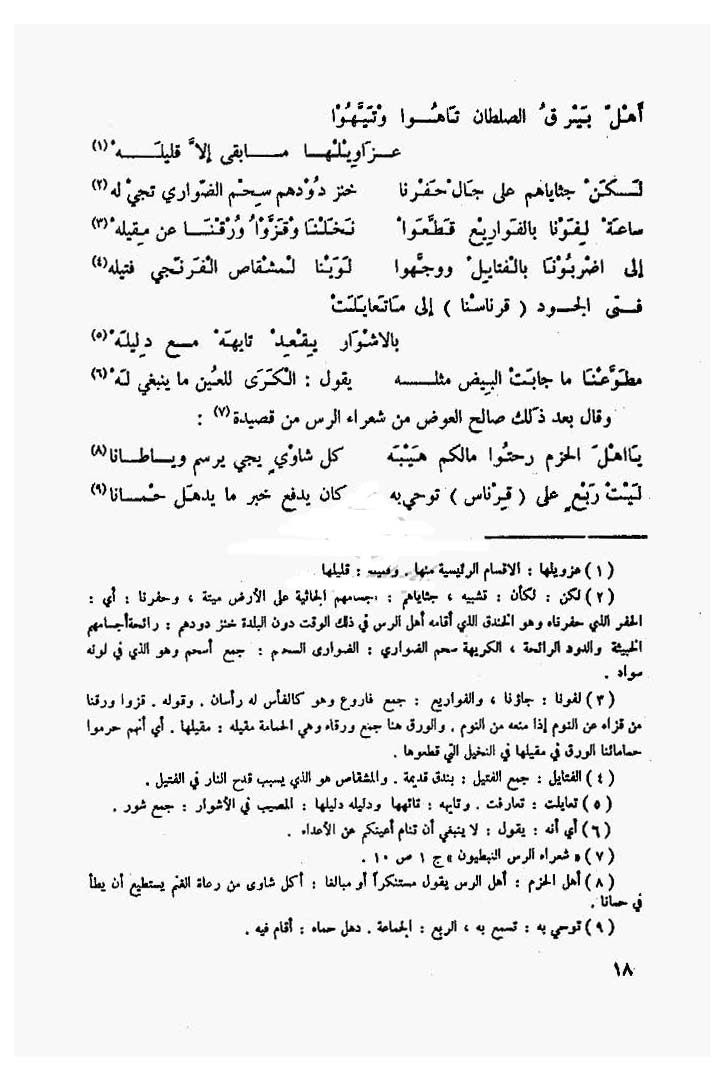 أَهْلْ بَيْرقُ الصلطان تاهُوا وْتَيَّهُوْا
عزاوِيْلْها مابقى إلاَّ قليلهْ (١)
لَكَنْ جثاياهم على جال حَفَرْنا خنز دُوْدهم سِحْم الضّواري تجيْ له (٢)
ساعةْ لِفَوْنا بالفَواريْع قَطَّعَوا نَخَلْنا وْقَزَّوْا وُرْقْنا عن مِقيله (٣)
إلى اضْربُوْنا بالْفتايِلْ ووجهوا لَوَيْنا لْمشقاص الْفَرنْجي فتيله (٤)
فتى الجود ( قرناسْنا ) إلى ماتَعايَلَتْ
بالاشْوار يِقْعِدْ تايههْ مع دليلهْ (٥)
مطوَّعْنا ما جابتْ البيض مثله يقول : الْكَرَى للعَين ما ينبغي لهْ (٦)
وقال بعد ذلك صالح العوض من شعراء الرس من قصيدة (٧) :
يااهلَ الحزم رحتُوا مالكم هَيْبَه كل شاوْيٍ يجي يرسم وياطانا (٨)
لَيْتْ رَبْعٍ على ( قِرْناس ) توحي به كان يدفع خبر ما يدهل حْمانا (٩)
(١) عزويلها : الاقسام الرئيسية منها . : قليلها
(٢) لكن : لكأن : تشبيه ، جثاياهم : اجسامهم الجاثية على الأرض ميتة ، وحفرنا : أي :
الحفر اللي حفرناه وهو الخندق الذي أقامه أهل الرس في ذلك الوقت دون البلدة خنز دودهم : رائحة أجسامهم
الخبيثة والدود الرائحة ، الكريهة سحم الضواري : الضوارى السحم : جمع أسحم وهو الذي في لونه
سواد .
(٣) لفونا : جاؤنا ، والفواريع : جمع فاروع وهو كالفأس له رأسان . وقوله . قزوا ورقنا
من قزاه عن النوم إذا منعه من النوم . والورق هنا جمع ورقاء وهي الحمامة مقيله : مقيلها . أي أنهم حرموا
حمامائنا الورق في مقيلها في النخيل التي قطعوها .
(٤) الفتايل : جمع الفتيل : بندق قديمة . والمشقاص هو الذي يسبب قدح النار في الفتيل .
(٥) تعايلت : تعارفت . وتايهه : تائهها ودليله دليلها : المصيب في الأشوار : جمع شور .
(٦) أي أنه : يقول : لا ينبغي أن تنام أعينكم عن الأعداء .
(٧) « شعراء الرس النبطيون » ج ١ ص ١٠ .
(٨) أهل الحزم : أهل الرس يقول مستنكراً أو مبالغا : أكل شاوى من رعاة الغنم يستطيع أن يطأ
في حمانا .
(٩) توحي به : تسمع به ، الربع : الجماعة . دهل حماه : أقام فيه .
١٨